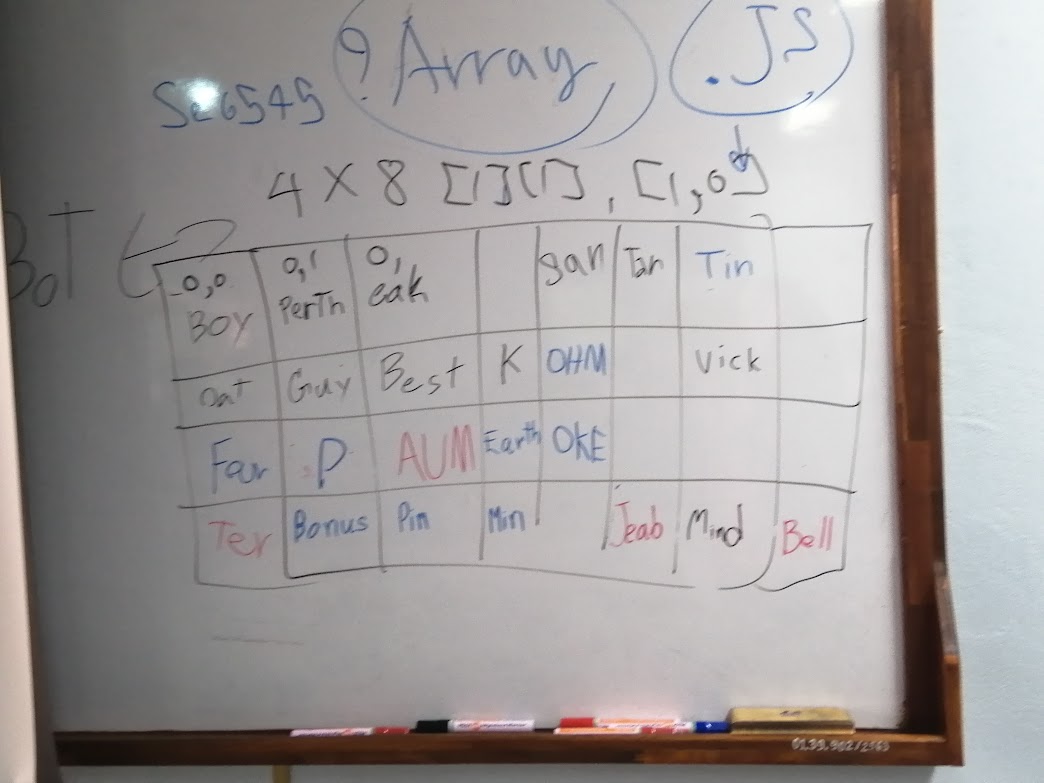 ? Array, .JS
4 X 8 [1][1], [1,0]
BOT
0,0 0,1 0,
BOY PerTh eak gan Tan Tin
Oat Guy Best K OHM Vick
Four P AUM Earth OKE
Ter Bonus Pin Min Jeab Mind Bell
01.39.902/2563